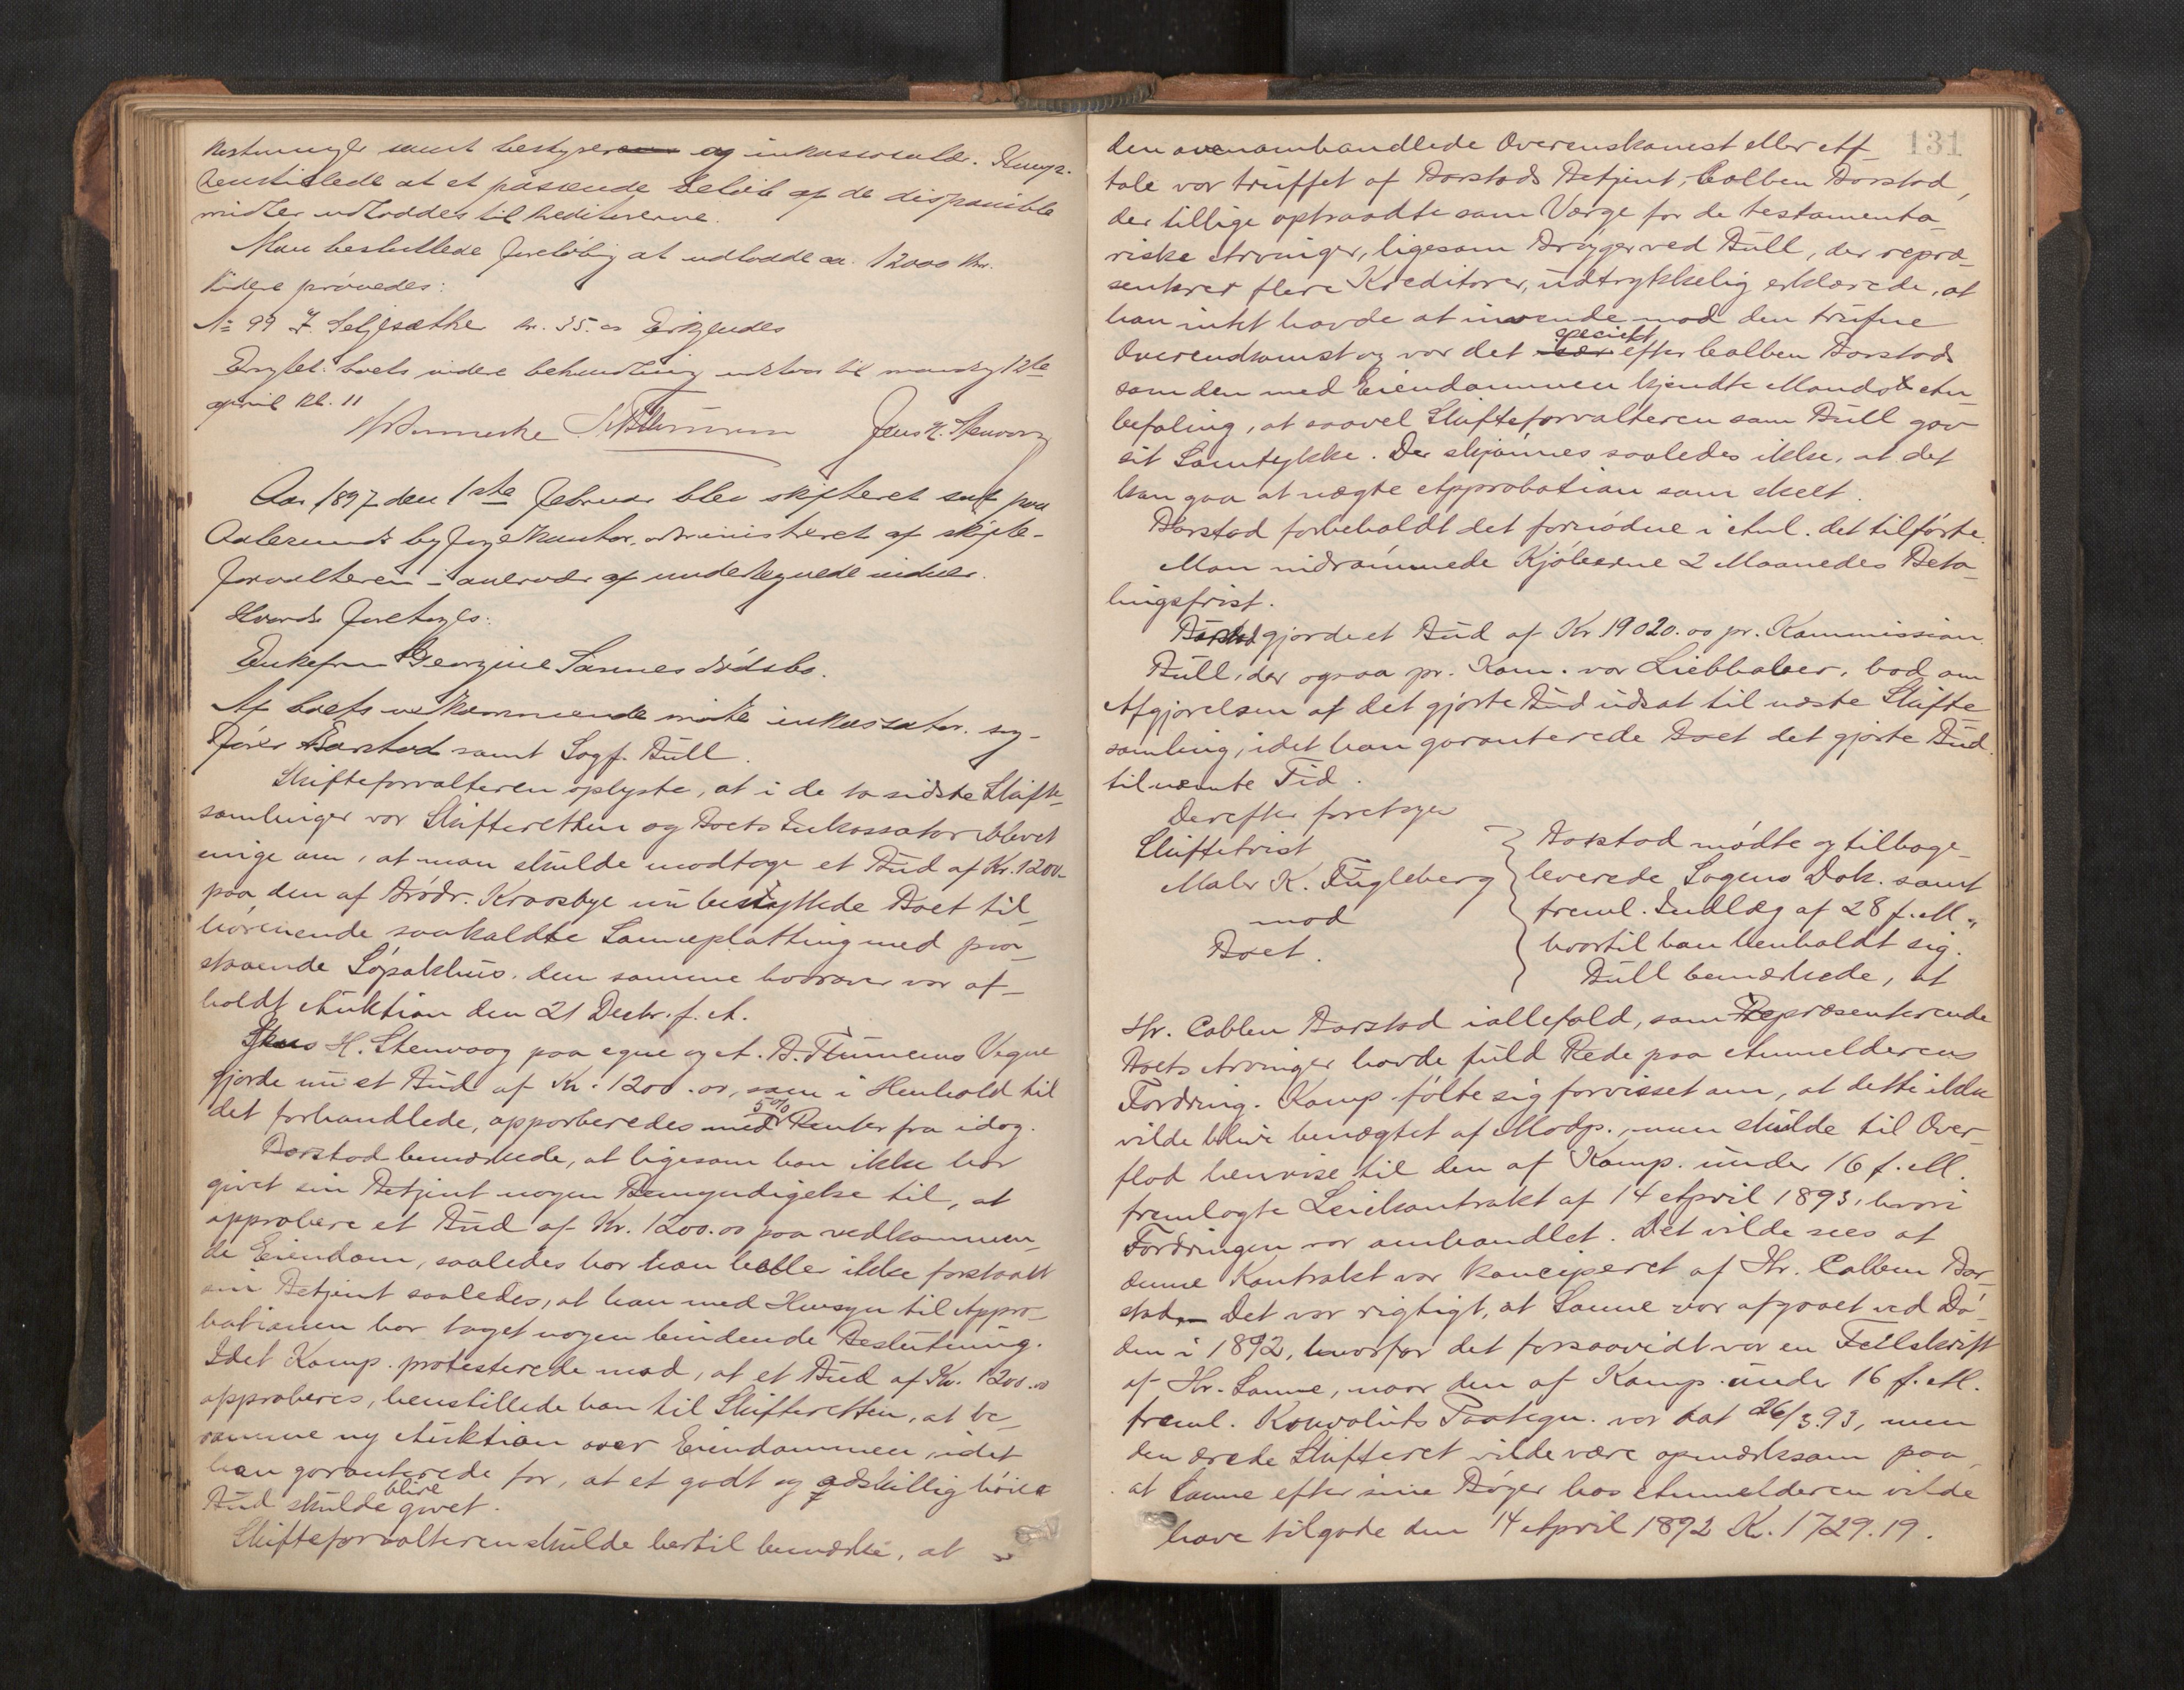 kostninger samt bestyrer og inkassosalær. Komp.
henstillede at et passende beløb af de disponible
midler udloddes til kreditorerne.
Man besluttede foreløbig at udlodde ca. 12000 Kr.
Videre prøvedes:
No 99 J. Seljesæther kr. 35.00 Erkjendes
boets videre behandling udstod til mandag 12te
april kl. 11
Jens H. Stenvaag
Aar 1897 den 1ste februar blev skifteret sat paa
Aalesunds byfogedkontor, administreret af skifte-
forvalteren i overvær af undertegnede vidner.
Hvorda foretoges:
Enkefru Georgine Sannes dødsbo.
Af boets vedkommende mødte inkassator, sag-
fører Barstad samt Sagf. Bull.
Skifteforvalteren oplyste, at i de to sidste Skifte-
samlinger var Skifteretten og Boets Inkassator blevet
enige om, at man skulde modtage et Bud af Kr. 1200-
paa den af Brødr. Kraasbye nu benyttede Boet til-
hørenende saakaldte Sanneplatting med paa-
staaende Søpakhus, den samme hvorover var af-
holdt Auktion den 21 Decbr. f. A.
Jens H. Stenvaag paa egne og A. B. Flemmens Vegne
gjorde nu et Bud af Kr. 1200.00, som i Henhold til
det forhandlede, apporberedes med 5% Renter fra idag.
Barstad bemærkede, at ligesom han ikke har
givet sin Betjent nogen Bemyndigelse til, at
approbere et Bud af Kr. 1200.00 paa vedkommen-
de Eiendom, saaledes har han heller ikke forstaaet
sin Betjent saaledes, at han med Hensyn til Appro-
bationen har taget nogen bindende Beslutning.
Idet Komp. protesterede mod, at et Bud af Kr. 1200.00
approberes, henstillede han til Skifteretten, at be-
ramme ny Auktion over Eiendommen, idet
han garanterede for, at et godt og adskillig høiere
Bud skulde blive givet.
Skifteforvalteren skulde hertil bemærke, at
131
den ovenomhandlede Overenskomst eller Af-
tale var truffet af Barstads Betjent, Colben Barstad,
der tillige optraadte som Værge for de testamenta-
riske Arvinger, ligesom Brygger ved Bull, der repræ-
senterer flere Kreditorer, udtrykkelig erklærede, at
han intet havde at invende mod den trufne
Overenskomst og var det specielt efter Colben Barstad
som den med Eiendommen kjendte Mands An-
befaling, at saavel Skifteforvalteren som Bull gav
sit Samtykke. Der skjønnes saaledes ikke, at det
kan gaa at nægte Approbation som skeet.
Barstad forbeholdt det fornødne i Anl. det tilførte.
Man indrømmede Kjøberne 2 Maanedes Beta-
lingsfrist.
Barstad gjorde et Bud af Kr 19020.00 pr. Kommission.
Bull, der ogsaa pr. Kom. var Liebhaber, bad om
Afgjørelsen af det gjorte Bud udsat til næste Skifte-
samling, idet han garanterede Boet det gjorte Bud
til nævnte Tid.
Derefter foretoges
Skiftetvist
Maler K. Fugleberg
mod
Boet.
Barstad mødte og tilbage-
leverede Sagens Dok. samt
freml. Indlæg af 28 f. M.,
hvortil han henholdt sig.
Bull bemærkede, at
Hr. Colben Barstad iallefald, som Repræsenterende
Boets Arvinger havde fuld Rede paa Anmelderens
Fordring. Komp. følte sig forvisset om, at dette ikke
vilde blive benægtet af Modp., men skulde til Over-
flod henvise til den af Komp. under 16 f. M.
fremlagte Leiekontrakt af 14 April 1893, hvori
Fordringen var omhandlet. Det vilde sees at
denne Kontrakt var konciperet af Hr. Colben Bar-
stad. Det var rigtigt, at Sanne var afgaaet ved Dø-
den i 1892, hvorfor det forsaavidt var en Feilskrift
af Hr. Sanne, naar den af Komp. under 16 f. M.
freml. Konvoluts Paategn. var dat 26/3.93, men
den ærede Skifteret vilde være opmærksom paa,
at Sanne efter sine Bøger hos Anmelderen vilde
have tilgode den 14 April 1892 K. 1729.19.